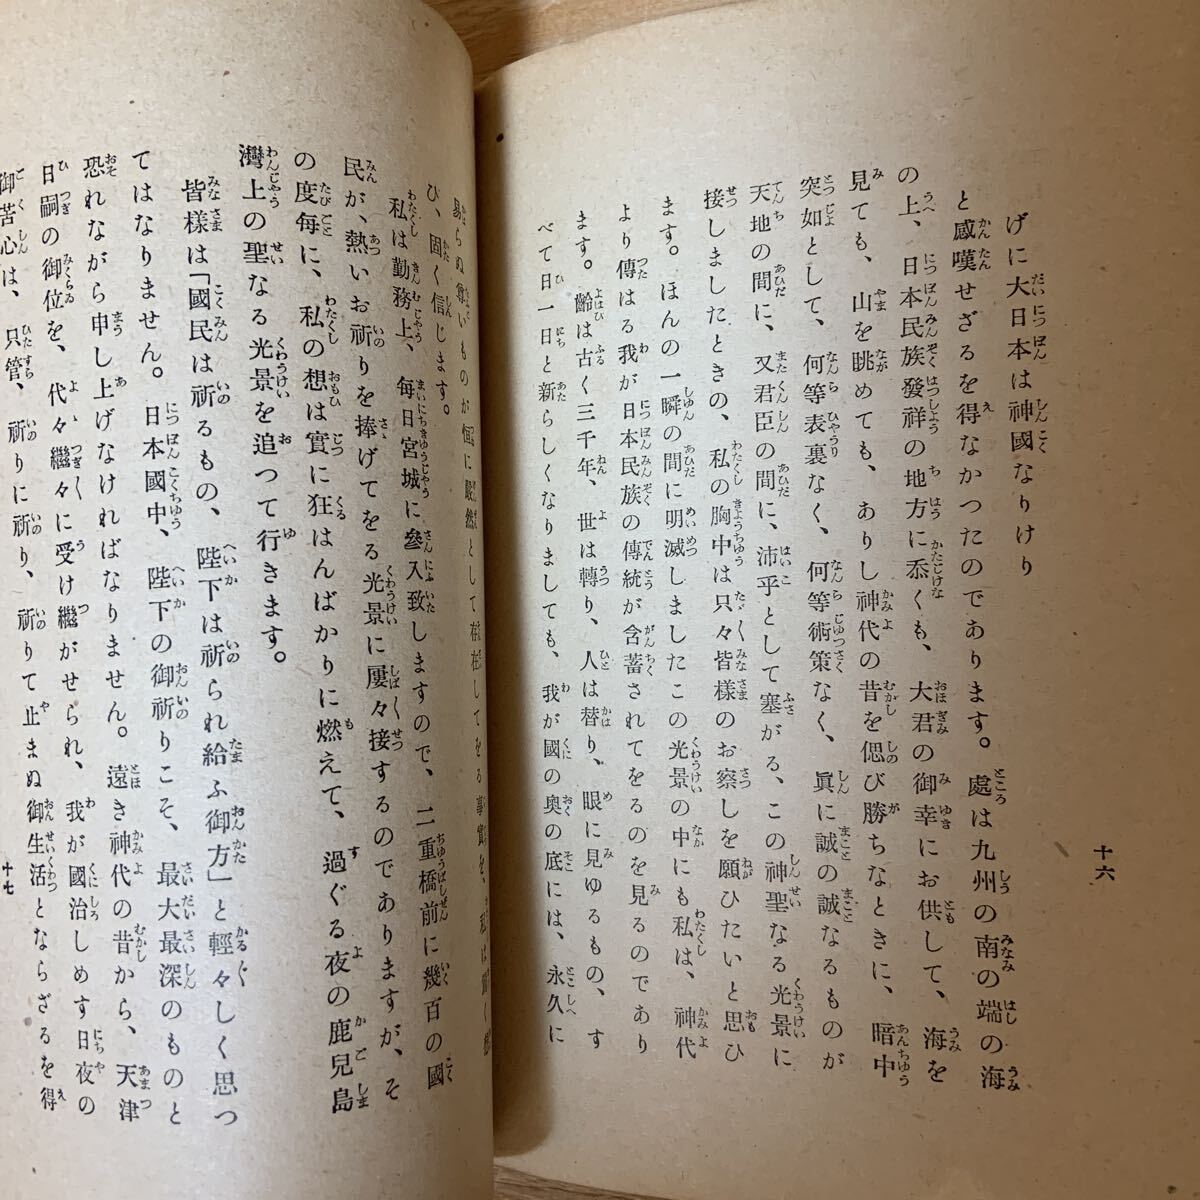 十六
げに大日本は神國なりけり
と感嘆せざるを得なかつたのであります。處は九州の南の端の海
の上、日本民族發祥の地方に忝くも、大君の御幸にお供して、海を
見ても、山を眺めても、ありし神代の昔を偲び勝ちなときに、暗中
突如として、何等表裏なく、何等術策なく、眞に誠の誠なるものが
天地の間に、又君臣の間に、沛乎として塞がる、この神聖なる光景に
接しましたときの、私の胸中は只々皆様のお察しを願ひたいと思ひ
ます。ほんの一瞬の間に明滅しましたこの光景の中にも私は、神代
より傳はる我が日本民族の傳統が含蓄されてをるのを見るのであり
ます。齡は古く三千年、世は轉り、人は替り、眼に見ゆるもの、す
べて日一日と新らしくなりましても、我が國の奥の底には、永久に
易らぬ尊いものが恒に嚴然として存在してをる事實を、私は
ひ、固く信じます。
私は勤務上、毎日宮城に參入致しますので、二重橋前に幾百の國
民が、熱いお祈りを捧げてをる光景に屢々接するのでありますが、そ
の度毎に、私の想は實に狂はんばかりに燃えて、過ぐる夜の鹿兒島
灣上の聖なる光景を追つて行きます。
皆様は「國民は祈るもの、陛下は祈られ給ふ御方」と輕々しく思つ
てはなりません。日本國中、陛下の御祈りこそ、最大最深のものと
恐れながら申し上げなければなりません。遠き神代の昔から、天津
日嗣の御位を、代々繼々に受け繼がせられ、我が國治しめす日夜の
御苦心は、只管、祈りに祈り、祈りて止まぬ御生活とならざるを得
十七